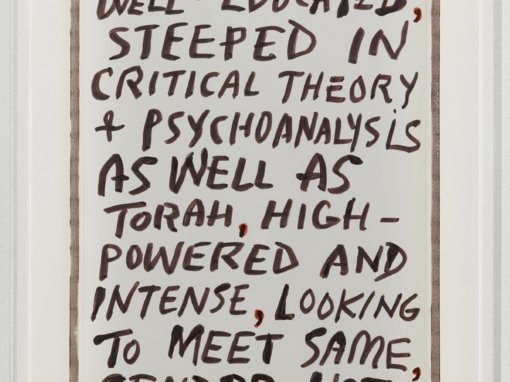 WELL-EDUCATED,
STEEPED IN
CRITICAL THEORY
+ PSYCHOANALYSIS
AS WELL AS
TORAH, HIGH-
POWERED AND
INTENSE, LOOKING
TO MEET SAME,
GENDER NOT